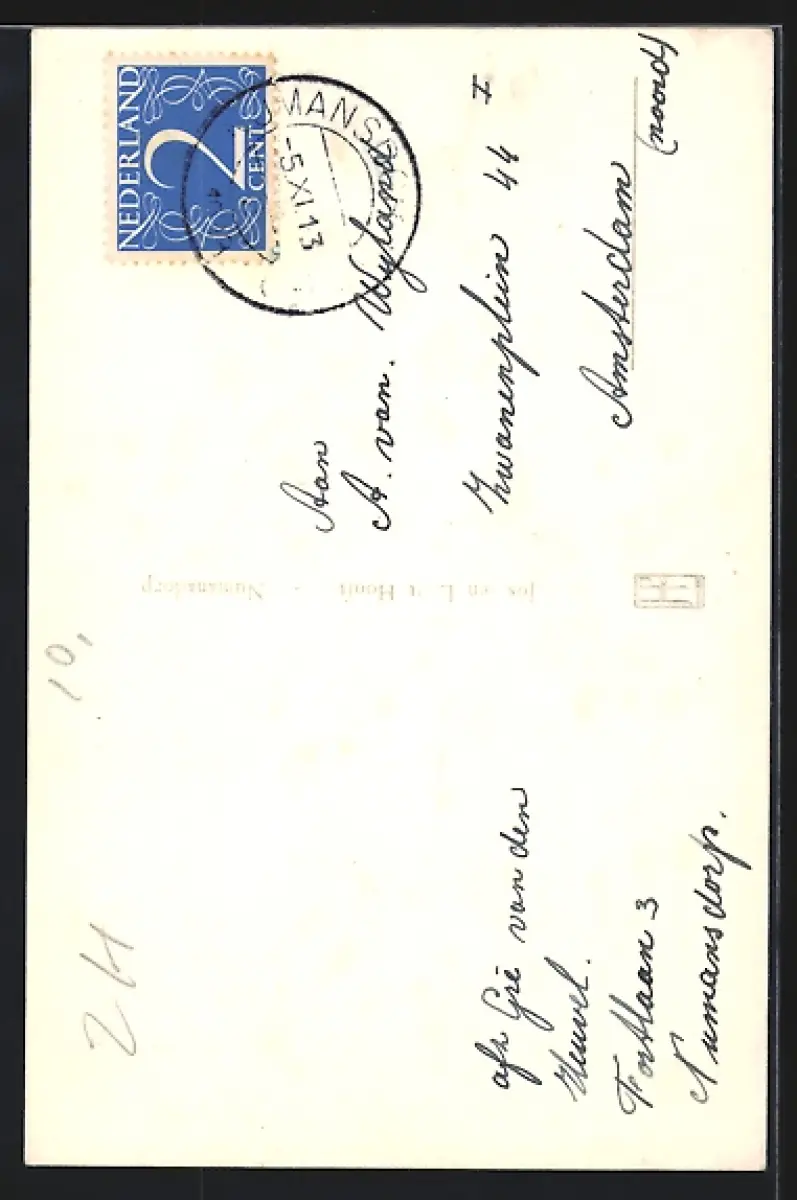 NEDERLAND
2
CENT
MANS
-5.XI.13
Aan
A. van. Wyland
Zwanenplein 44 I
Amsterdam
(noord)
Numansdorp
10,
24
afz Gré van den
Heuvel.
Fortlaan 3
Numansdorp.